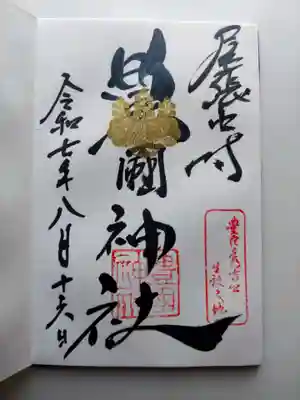 尾張中村
豊國神社
令和七年八月十六日
豊臣秀吉公
生誕之地